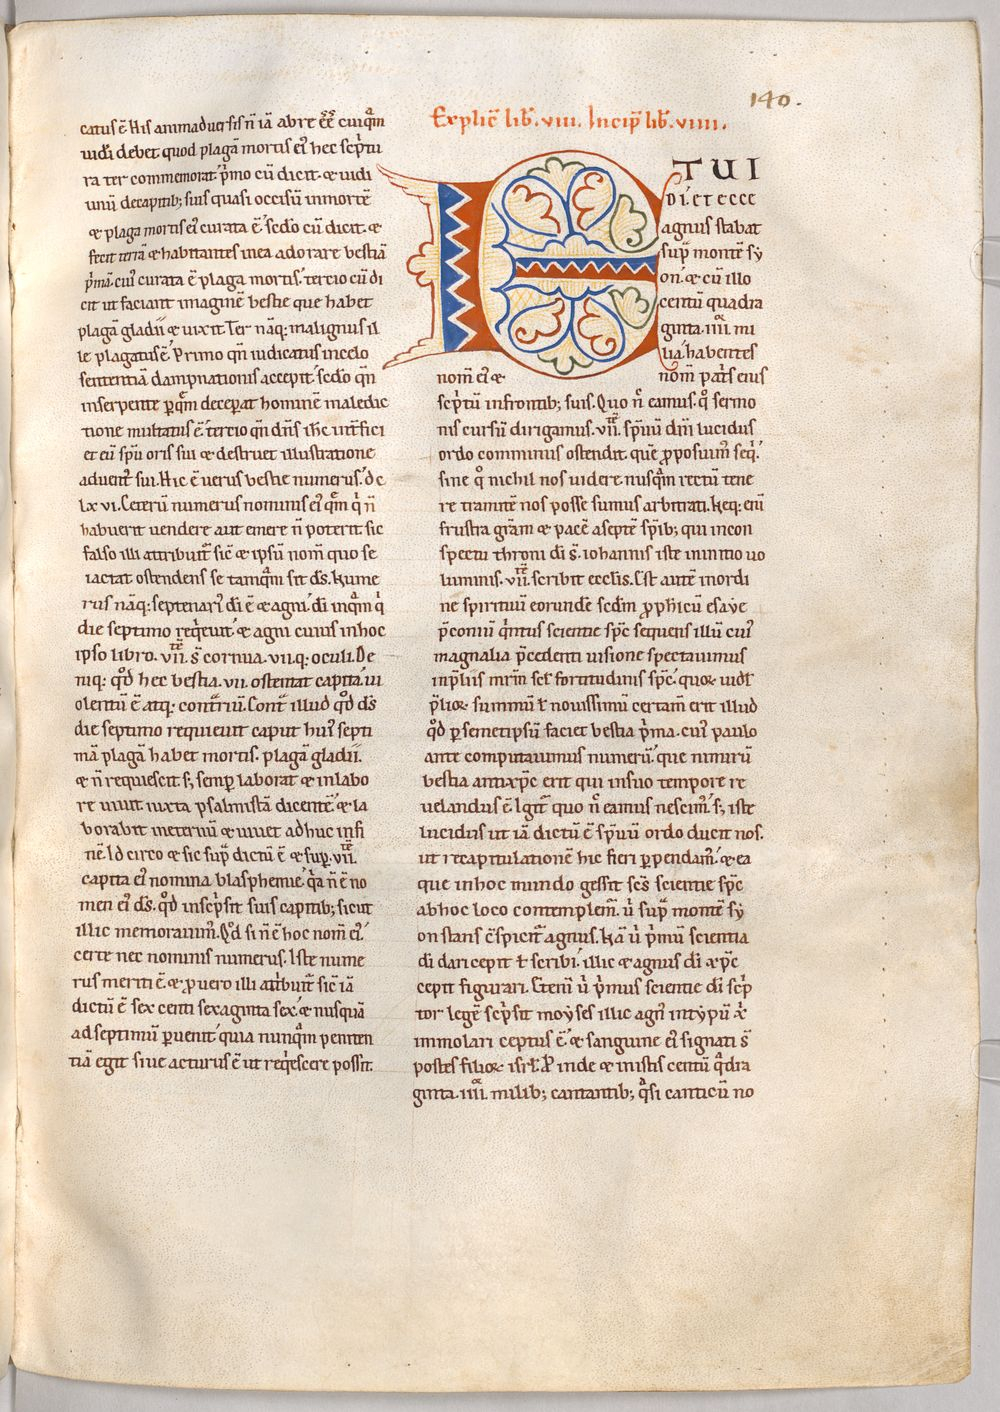 140.
catus ē. His animaduersis n̄ iā abr̄e eēt cuiq̄m
uidēi debet quod plagā mortis ei᷒ hec sc̄ptu
ra ter commemorat. p̄mo cū dicit. & uidi
unū decapitib; suis quasi occisū inmortē
& plaga mortis ei᷒ curata ē. sedo cū dicit. &
fecit terrā & habitantes inea adorare bestiā
p̄mā. cui᷒ curata ē plaga mortis. tercio cū di
cit ut faciant imaginē bestie que habet
plagā gladii & uixit. Ter nāq: malignus il
le plagatus ē. Primo qn̄ iudicatus incelo
sententiā dampnationis accepit. sedo qn̄
inserpente p̱q̄m decep̱at hominē maledic
tione multatus ē. tercio qn̄ dn̄s ih̄c int̄fici
et eū sp̄u oris sui & destruet illustratione
aduent᷒ sui. Hic ē uerus bestie numerus. dc
lxvi. Ceterū numerus nominis ei᷒ q̄m q̇ n̄
habuerit uendere aut emere n̄ poterit sic
falso illi attribuit̄ sic̄ & ipsū nom̄ quo se
iactat ostendens se tamq̄m sit d̄s. Nume
rus nāq: septenari᷒ di ē & agni. di inq̄m q̇
die septimo req̇euit. & agni cuius inhoc
ipso libro. vii. s̄ cornua. vii. q: oculi. De
niq: q̊d hec bestia. vii. ostentat capita. ui
olentū ē atq: cont̄riū. Cont̄ illud q̊d d̄s
die septimo requieuit caput hui᷒ septi
mā plagā habet mortis. plagā gladii.
& n̄ requiescit. s; semp̱ laborat & inlabo
re uiuit iuxta psalmistā dicentē. & la
borabit ineternū & uiuet adhuc infi
nē. Id circo & sic sup̄ dictū ē & sup̱. vii.
capita ei᷒ nomina blasphemie. q̇a n̄ ē no
men ei᷒ d̄s. q̊d insc̄psit suis capitib; sicut
illic memorauim᷒. Q̊d si n̄ ē hoc nom̄ ei᷒.
certe nec nominis numerus. Iste nume
rus meriti ē. & p̱ uero illi att̄buit̄ sic̄ iā
dictū ē sex centi sexaginta sex. & nusquā
adseptimū p̱uenit. quia nunq̄m peniten
tiā egit siue acturus ē ut req̇escere possit.
Explic̄ lib̄. viii. Incip̄ lib̄. viiii.
ET UI
DI. ET ECCE
agnus stabat
sup̄ montē sy
on. & cū illo
centū quadra
ginta. iiii. mi
lia. habentes
nom̄ ei᷒ & nom̄ patris eius
sc̄ptū infrontib; suis. Quo n̄ eamus. q̊ sermo
nis cursū dirigamus. vii. sp̄uū dn̄i lucidus
ordo comminus ostendit. quē p̱posuim᷒ seq̇.
sine q̊ nichil nos uidere nusq̄m rectū tene
re tramitē nos posse sumus arbitrati. Neq: enī
frustra gr̄am & pacē aseptē sp̄ib; qui incon
spectu throni di s̄. iohannis iste ininitio uo
luminis. vii. scribit eccl̄is. Est autē inordi
ne spirituū eorundē scd̄m p̱ph̄icū esaye
p̄coniū q̇ntus scientie sp̄c sequens illū cui᷒
magnalia p̄cedenti uisione spectauimus
inp̄liis mr̄m scl̄ fortitudinis sp̄c. quoꝝ uidl̄
p̄lioꝝ summū ł nouissimū certam̄ erit illud
q̊d p̱ semetipsū faciet bestia p̄ma. cui᷒ paulo
ante computauimus numerū. que nimirū
bestia antixp̄c erit qui insuo tempore re
uelandus ē. Igit̄ quo n̄ eamus nescim᷒. s; iste
lucidus ut iā dictū ē sp̄uū ordo ducit nos.
ut recapitulationē hic fieri p̱pendam᷒. & ea
que inhoc mundo gessit sc̄s scientie sp̄c
abhoc loco contemplem̄. u̇ sup̄ montē sy
on stans c̄spicit̄ agnus. Nā u̇ p̄mū scientia
di dari cepit ł scribi. illic & agnus di xp̄c
cepit figurari. Etenī u̇ p̄mus scientie di sc̄p
tor legē sc̄psit moyses illic agn᷒ intypū xp̄i
immolari ceptus ē. & sanguine ei᷒ signati s̄
postes filioꝝ isrl̄. Et̄ inde & inistis centū q̄dra
ginta. iiii. milib; cantantib; q̄si canticū no